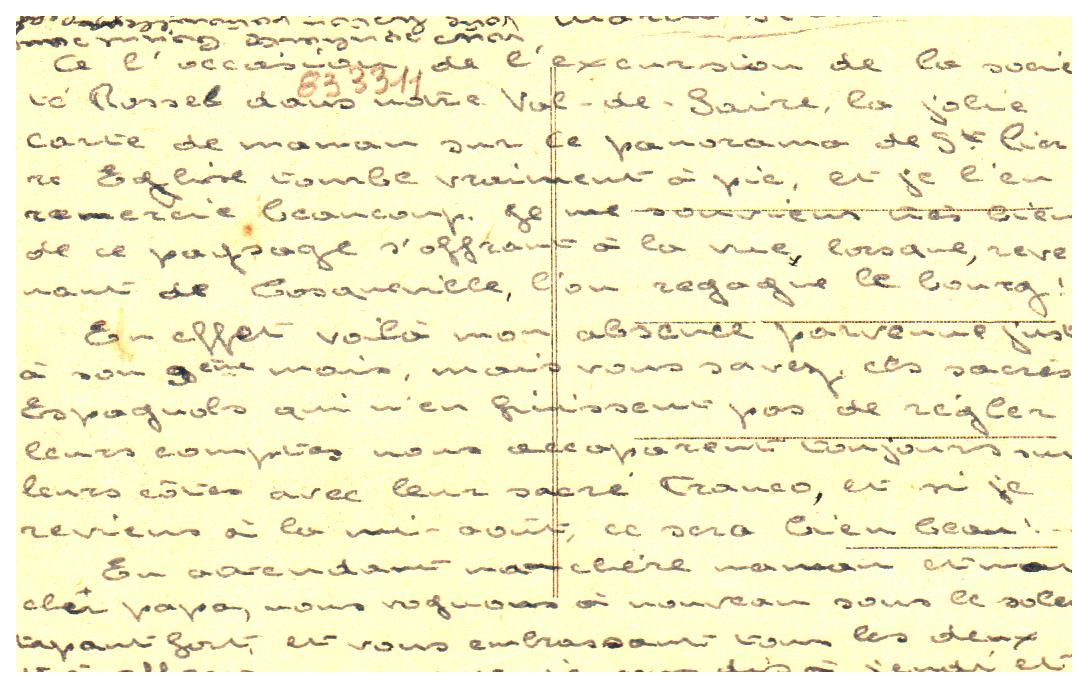 Ce l'occasion de l'excursion de la socié
té Rosset dans notre Val-de-Saire, la jolie
833311
carte de maman sur ce panorama de St Pier
re Eglise tombe vraiment à pic, et je l'en
remercie beaucoup. Je me souviens très bien
de ce paysage s'offrant à la vue, lorsque, reve
nant de Cosqueville, l'on regagne le bourg!
En effet voilà mon absence parvenue just
à son 9ème mois, mais vous savez, ces sacrés
Espagnols qui n'en finissent pas de régler
leurs comptes nous accaparent toujours sur
leurs côtes avec leur sacré Franco, et si je
reviens à la mi-août, ce sera bien beau!
En attendant ma chère maman et mon
cher papa, nous voguons à nouveau sous le solei
tapant fort, et vous embrassant tous les deux